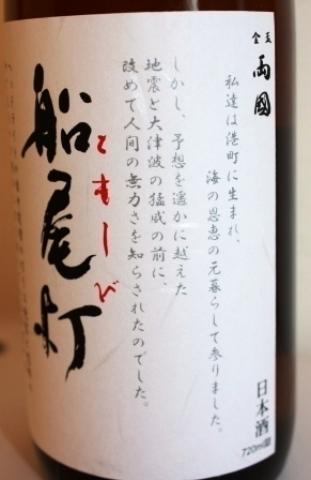 金文
両國
私達は港町に生まれ、
海の恩恵の元暮らして参りました。
しかし、予想を遥かに越えた
地震と大津波の猛威の前に、
改めて人間の無力さを知らされたのでした。
ともしび
船尾灯
日本酒
720ml詰